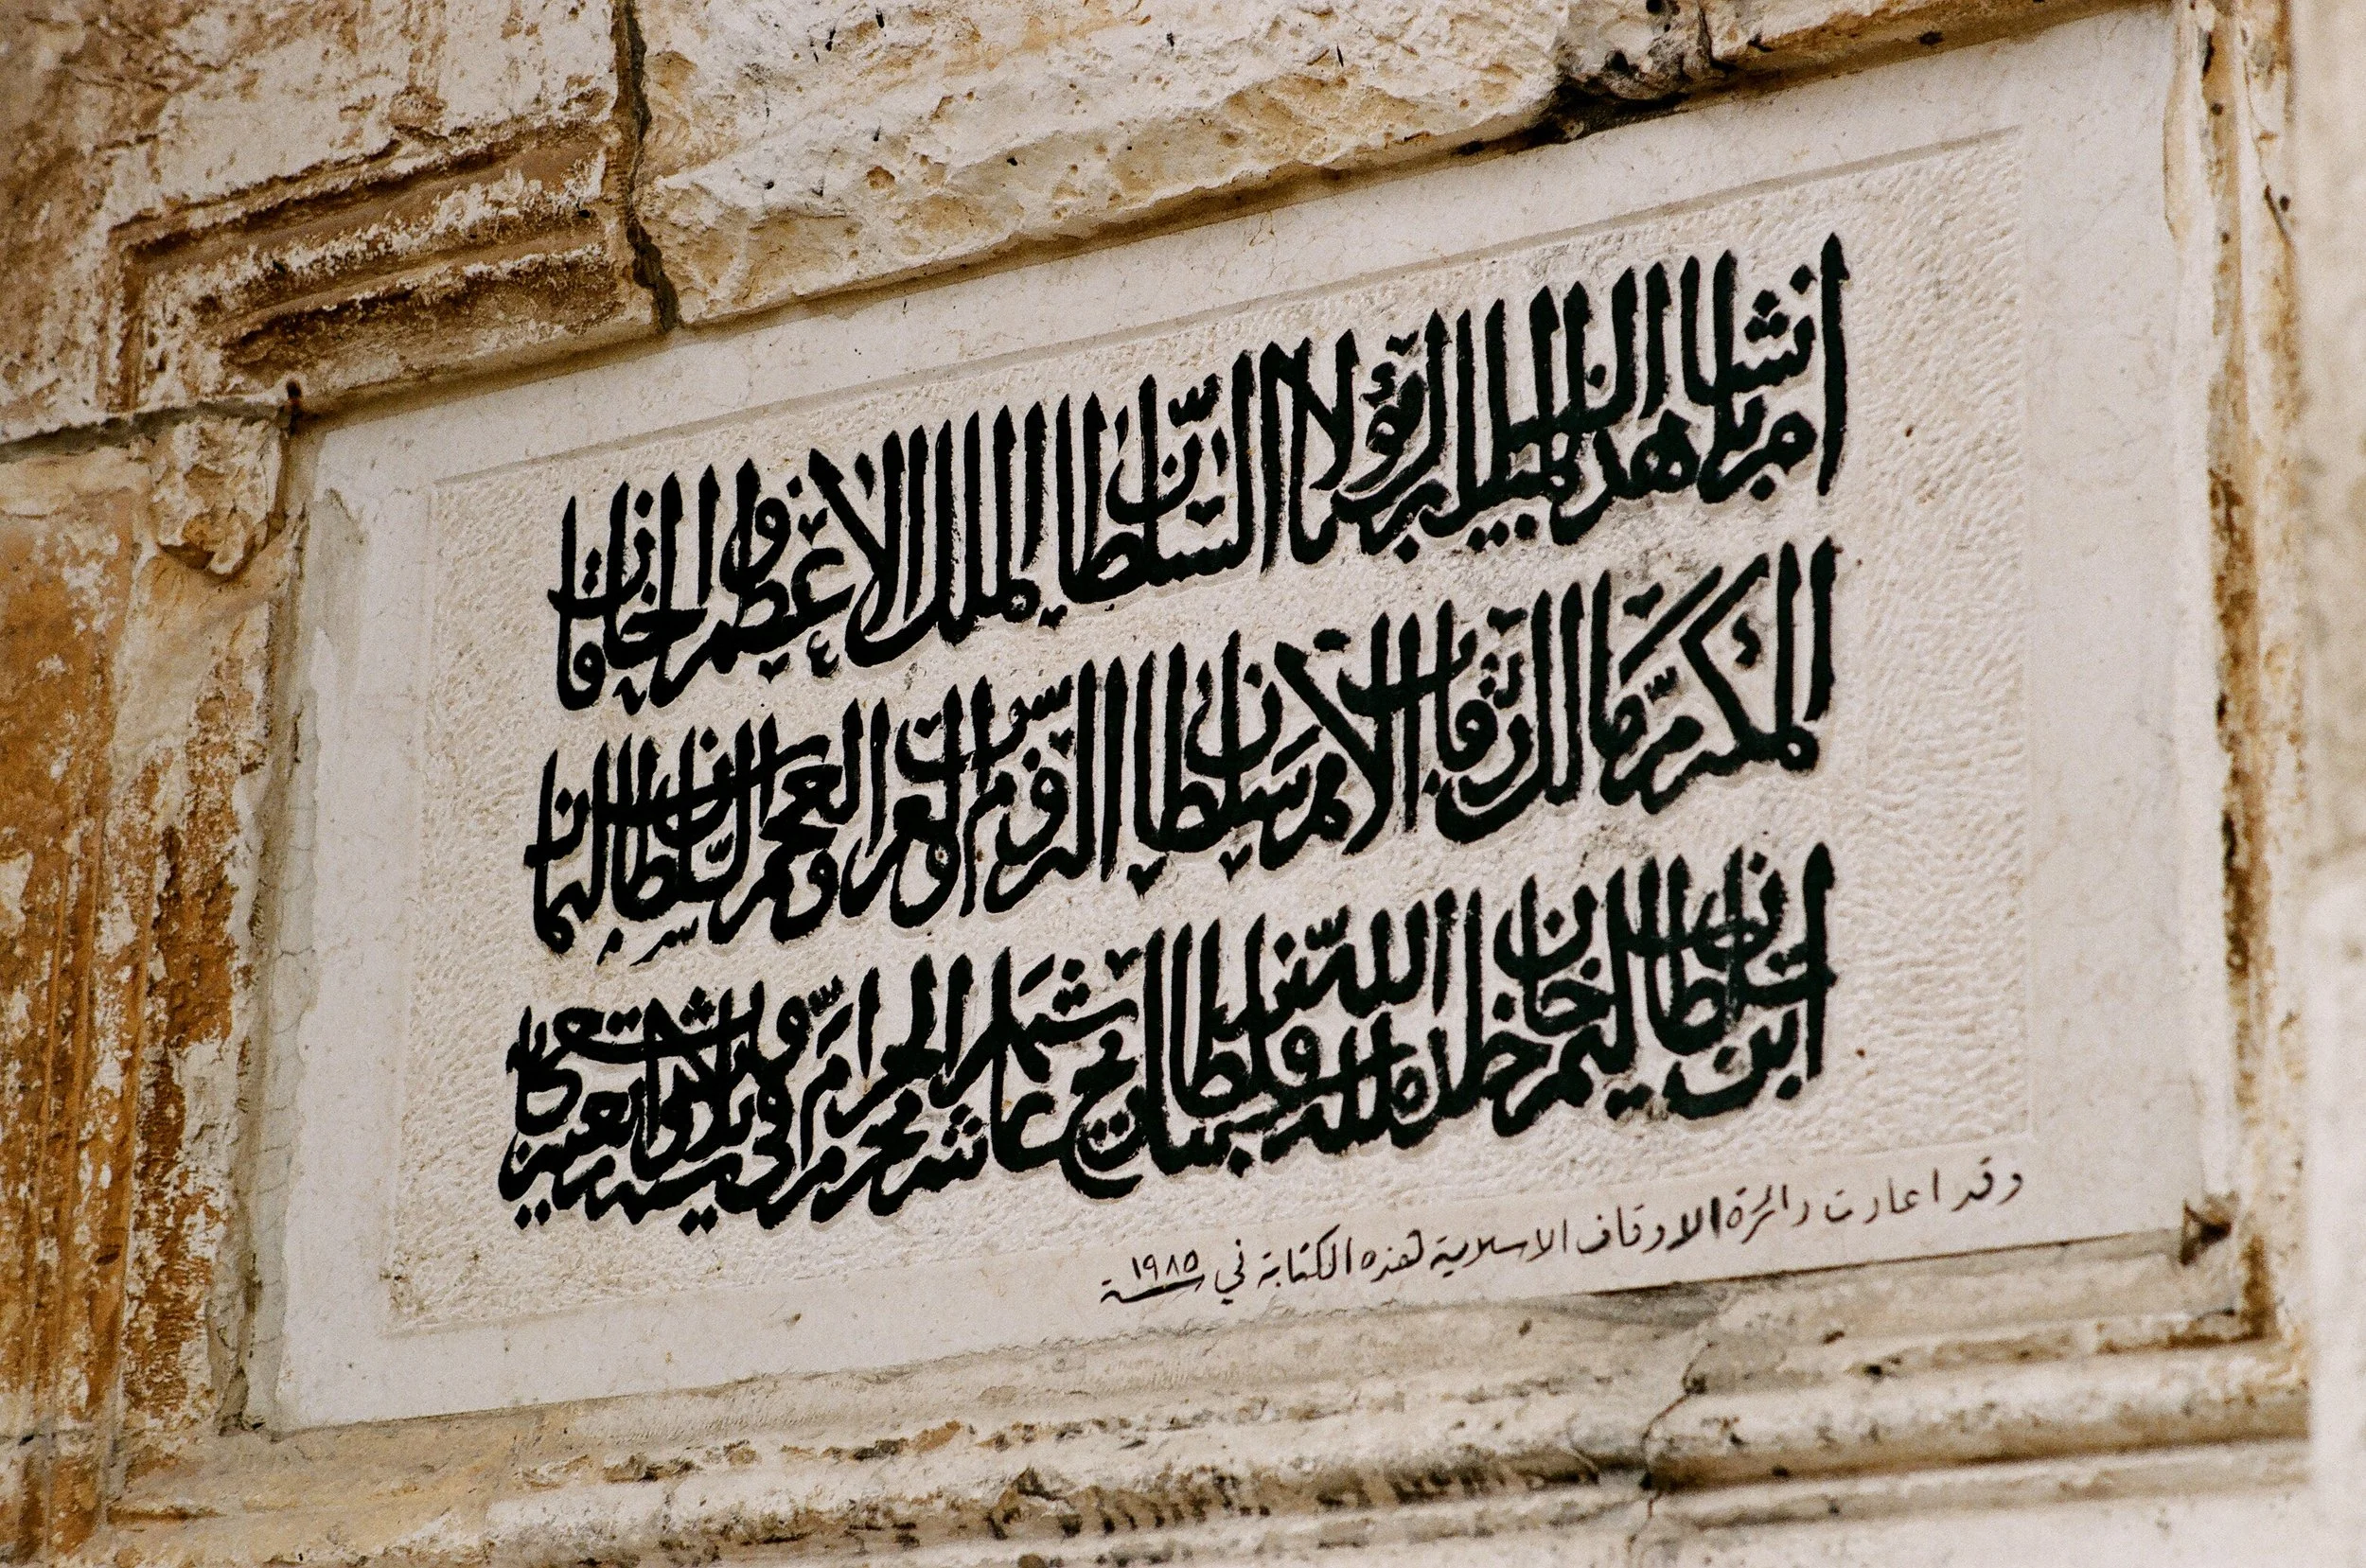 امر بانشا هذا السبيل المبرور مولانا السلطان الملك الاعظم والخاقان
المكرم مالك رقاب الامم سلطان الروم والعرب والعجم السلطان سليمان
ابن السلطان سليم خان خلد الله ملكه وسلطانه بتاريخ عاشر شهر محرم الحرام سنة ثلاث واربعين وتسعمائة
وقد اعادت دائرة الاوقاف الاسلامية هذه الكتابة في سنة ١٩٨٥